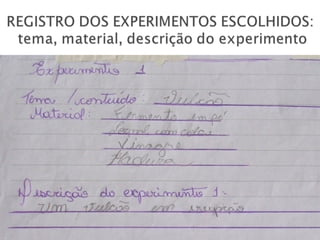 REGISTRO DOS EXPERIMENTOS ESCOLHIDOS:
tema, material, descrição do experimento
Experimentis 1
Tema / conteúdo: Vulcão
Material: Fermento em pó
Vinagre
Descrição do experimento 1-
Um vulcão em erupção